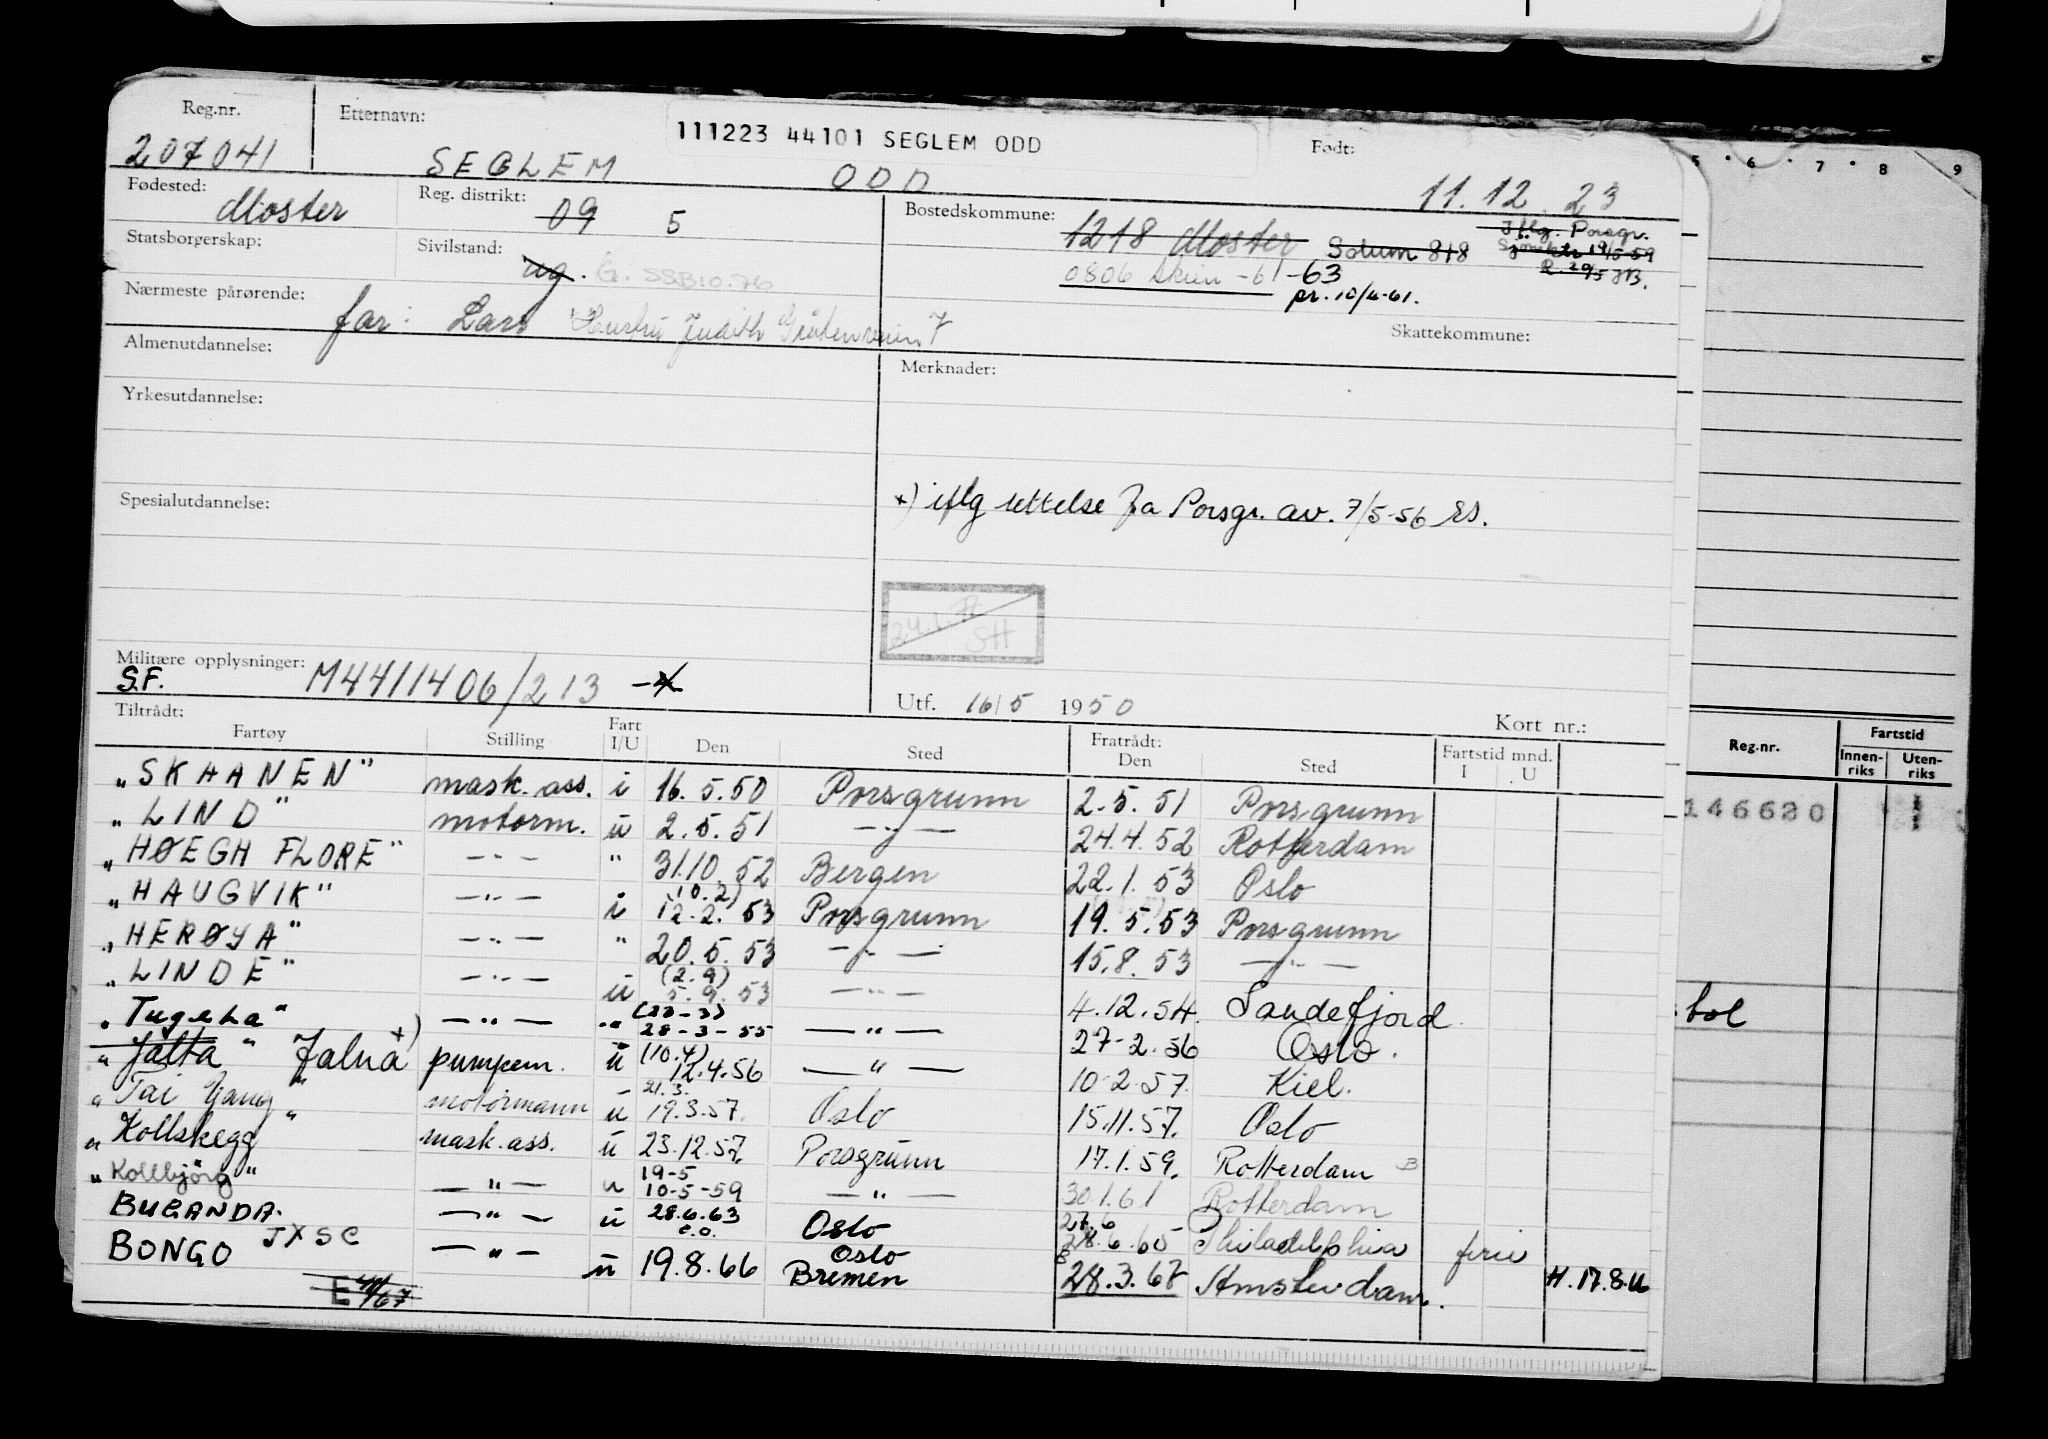 Reg.nr. Etternavn: 111223 44101 SEGLEM ODD Født:
207041 SEGLEM ODD 11.12.23
Fødested: Moster Reg. distrikt: 09 5 Bostedskommune: 1218 Moster Solum 818 Iflg. Porsgr.
19/5-59
R 29/5
Statsborgerskap: Sivilstand: ug. G. SSB10.76 0806 Skien -61 -63
pr. 10/4-61.
Nærmeste pårørende: far: Lars Hustru Judith 7 Skattekommune:
Almenutdannelse: Merknader:
Yrkesutdannelse:
Spesialutdannelse: x) iflg rettelse fra Porsgr. av. 7/5-56
24.1. SH
Militære opplysninger: M4411406/213
S.F.
Utf. 16/5 1950 Kort nr.:
Tiltrådt: Fratrådt: Fartstid mnd.
Fartøy Stilling Fart I/U Den Sted Den Sted I U
"SKAANEN" mask.ass. i 16.5.50 Porsgrunn 2.5.51 Porsgrunn
"LIND" motorm. u 2.5.51 —"— 24.4.52 Rotterdam
"HØEGH FLORE" —"— " 31.10.52 Bergen 22.1.53 Oslo
"HAUGVIK" —"— i (10.2) 12.2.53 Porsgrunn 19.5.53 Porsgrunn
"HERØYA" —"— " 20.5.53 —"— 15.8.53 —"—
"LINDE" —"— u (2.9) 5.9.53 —"— 4.12.54 Sandefjord
"Tugela" —"— " (23-3) 28-3-55 —"— 27-2.56 Oslo.
"Jalta" Jalna x) pumpem. u (10.4) 12.4.56 —"— 10-2.57. Kiel.
"Tai Yang" motormann u 21.3. 19.3.57. Oslo 15.11.57. Oslo
"Kollskegg" mask.ass. u 23.12.57. Porsgrunn 17.1.59. Rotterdam B
"Kollbjörg" —"— u 19-5 10-5-59 —"— 30.1.61 Rotterdam
BUGANDA. —"— u 28.6.63 e.o. Oslo 27.6 28.6.65 Philadelphia ferie
BONGO JXSC —"— u 19.8.66 Oslo Bremen 28.3.67 Amsterdam. H.17.8.66
E 4/67
5 6 7 8 9
Reg.nr. Fartstid
Innen-riks Uten-riks
146620